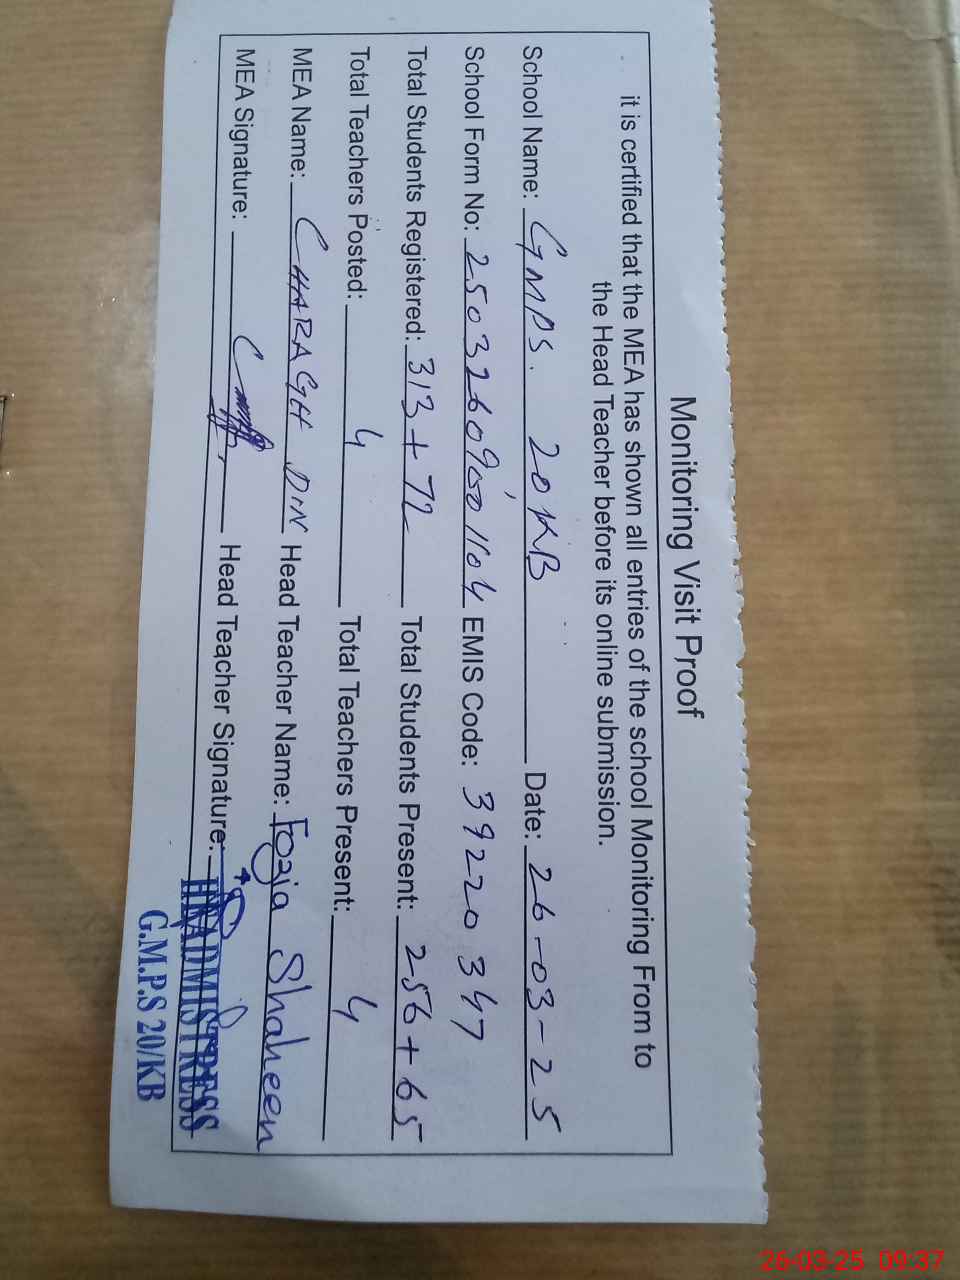 Monitoring Visit Proof
it is certified that the MEA has shown all entries of the school Monitoring From to
the Head Teacher before its online submission.
School Name: GMPS. 20 KB Date: 26-03-25
School Form No: 25032609001104 EMIS Code: 39220347
Total Students Registered: 313+72 Total Students Present: 256+65
Total Teachers Posted: 4 Total Teachers Present: 4
MEA Name: CHARAGH DIN Head Teacher Name: Fozia Shaheen
MEA Signature: Head Teacher Signature:
HEADMISTRESS
G.M.P.S 20/KB
26-03-25 09:37